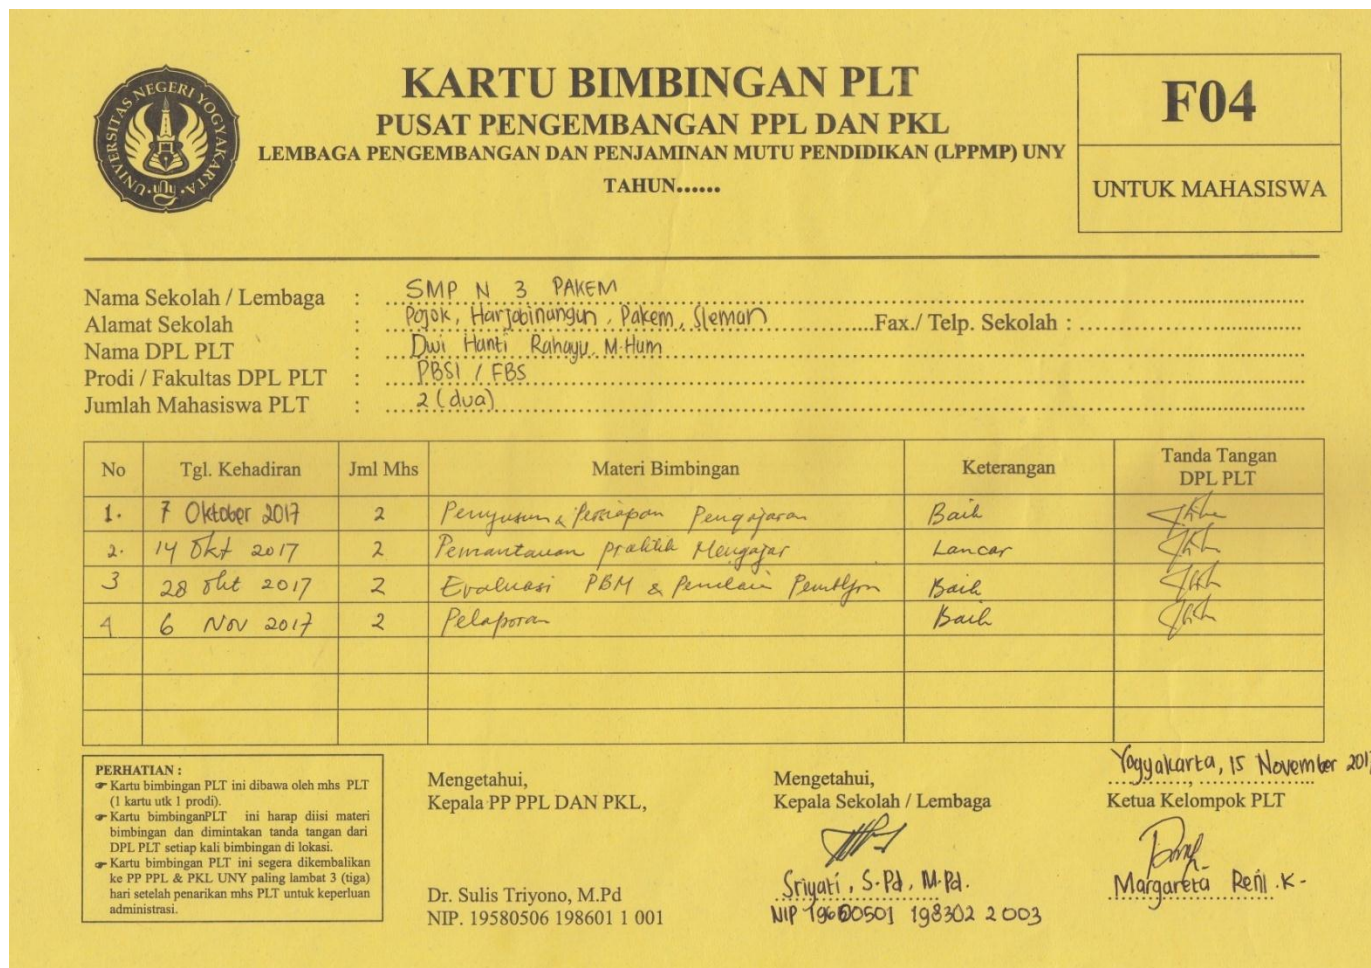 UNIVERSITAS NEGERI YOGYAKARTA
KARTU BIMBINGAN PLT
PUSAT PENGEMBANGAN PPL DAN PKL
LEMBAGA PENGEMBANGAN DAN PENJAMINAN MUTU PENDIDIKAN (LPPMP) UNY
TAHUN......
F04
UNTUK MAHASISWA
Nama Sekolah / Lembaga : SMP N 3 PAKEM
Alamat Sekolah : Pojok, Harjobinangun, Pakem, Sleman Fax./ Telp. Sekolah :
Nama DPL PLT : Dwi Hanti Rahayu, M.Hum
Prodi / Fakultas DPL PLT : PBSI / FBS
Jumlah Mahasiswa PLT : 2 (dua)
No Tgl. Kehadiran Jml Mhs Materi Bimbingan Keterangan Tanda Tangan DPL PLT
1. 7 Oktober 2017 2 Penyusun & Persiapan Pengajaran Baik
2. 14 Okt 2017 2 Pemantauan praktik Mengajar Lancar
3 28 Okt 2017 2 Evaluasi PBM & Baik
4 6 Nov 2017 2 Pelaporan Baik
PERHATIAN :
☞ Kartu bimbingan PLT ini dibawa oleh mhs PLT
(1 kartu utk 1 prodi).
☞ Kartu bimbinganPLT ini harap diisi materi
bimbingan dan dimintakan tanda tangan dari
DPL PLT setiap kali bimbingan di lokasi.
☞ Kartu bimbingan PLT ini segera dikembalikan
ke PP PPL & PKL UNY paling lambat 3 (tiga)
hari setelah penarikan mhs PLT untuk keperluan
administrasi.
Mengetahui,
Kepala PP PPL DAN PKL,
Dr. Sulis Triyono, M.Pd
NIP. 19580506 198601 1 001
Mengetahui,
Kepala Sekolah / Lembaga
Sriyati, S.Pd, M.Pd.
NIP 19600501 198302 2 003
Yogyakarta, 15 November 2017
Ketua Kelompok PLT
Margareta Reni .K-